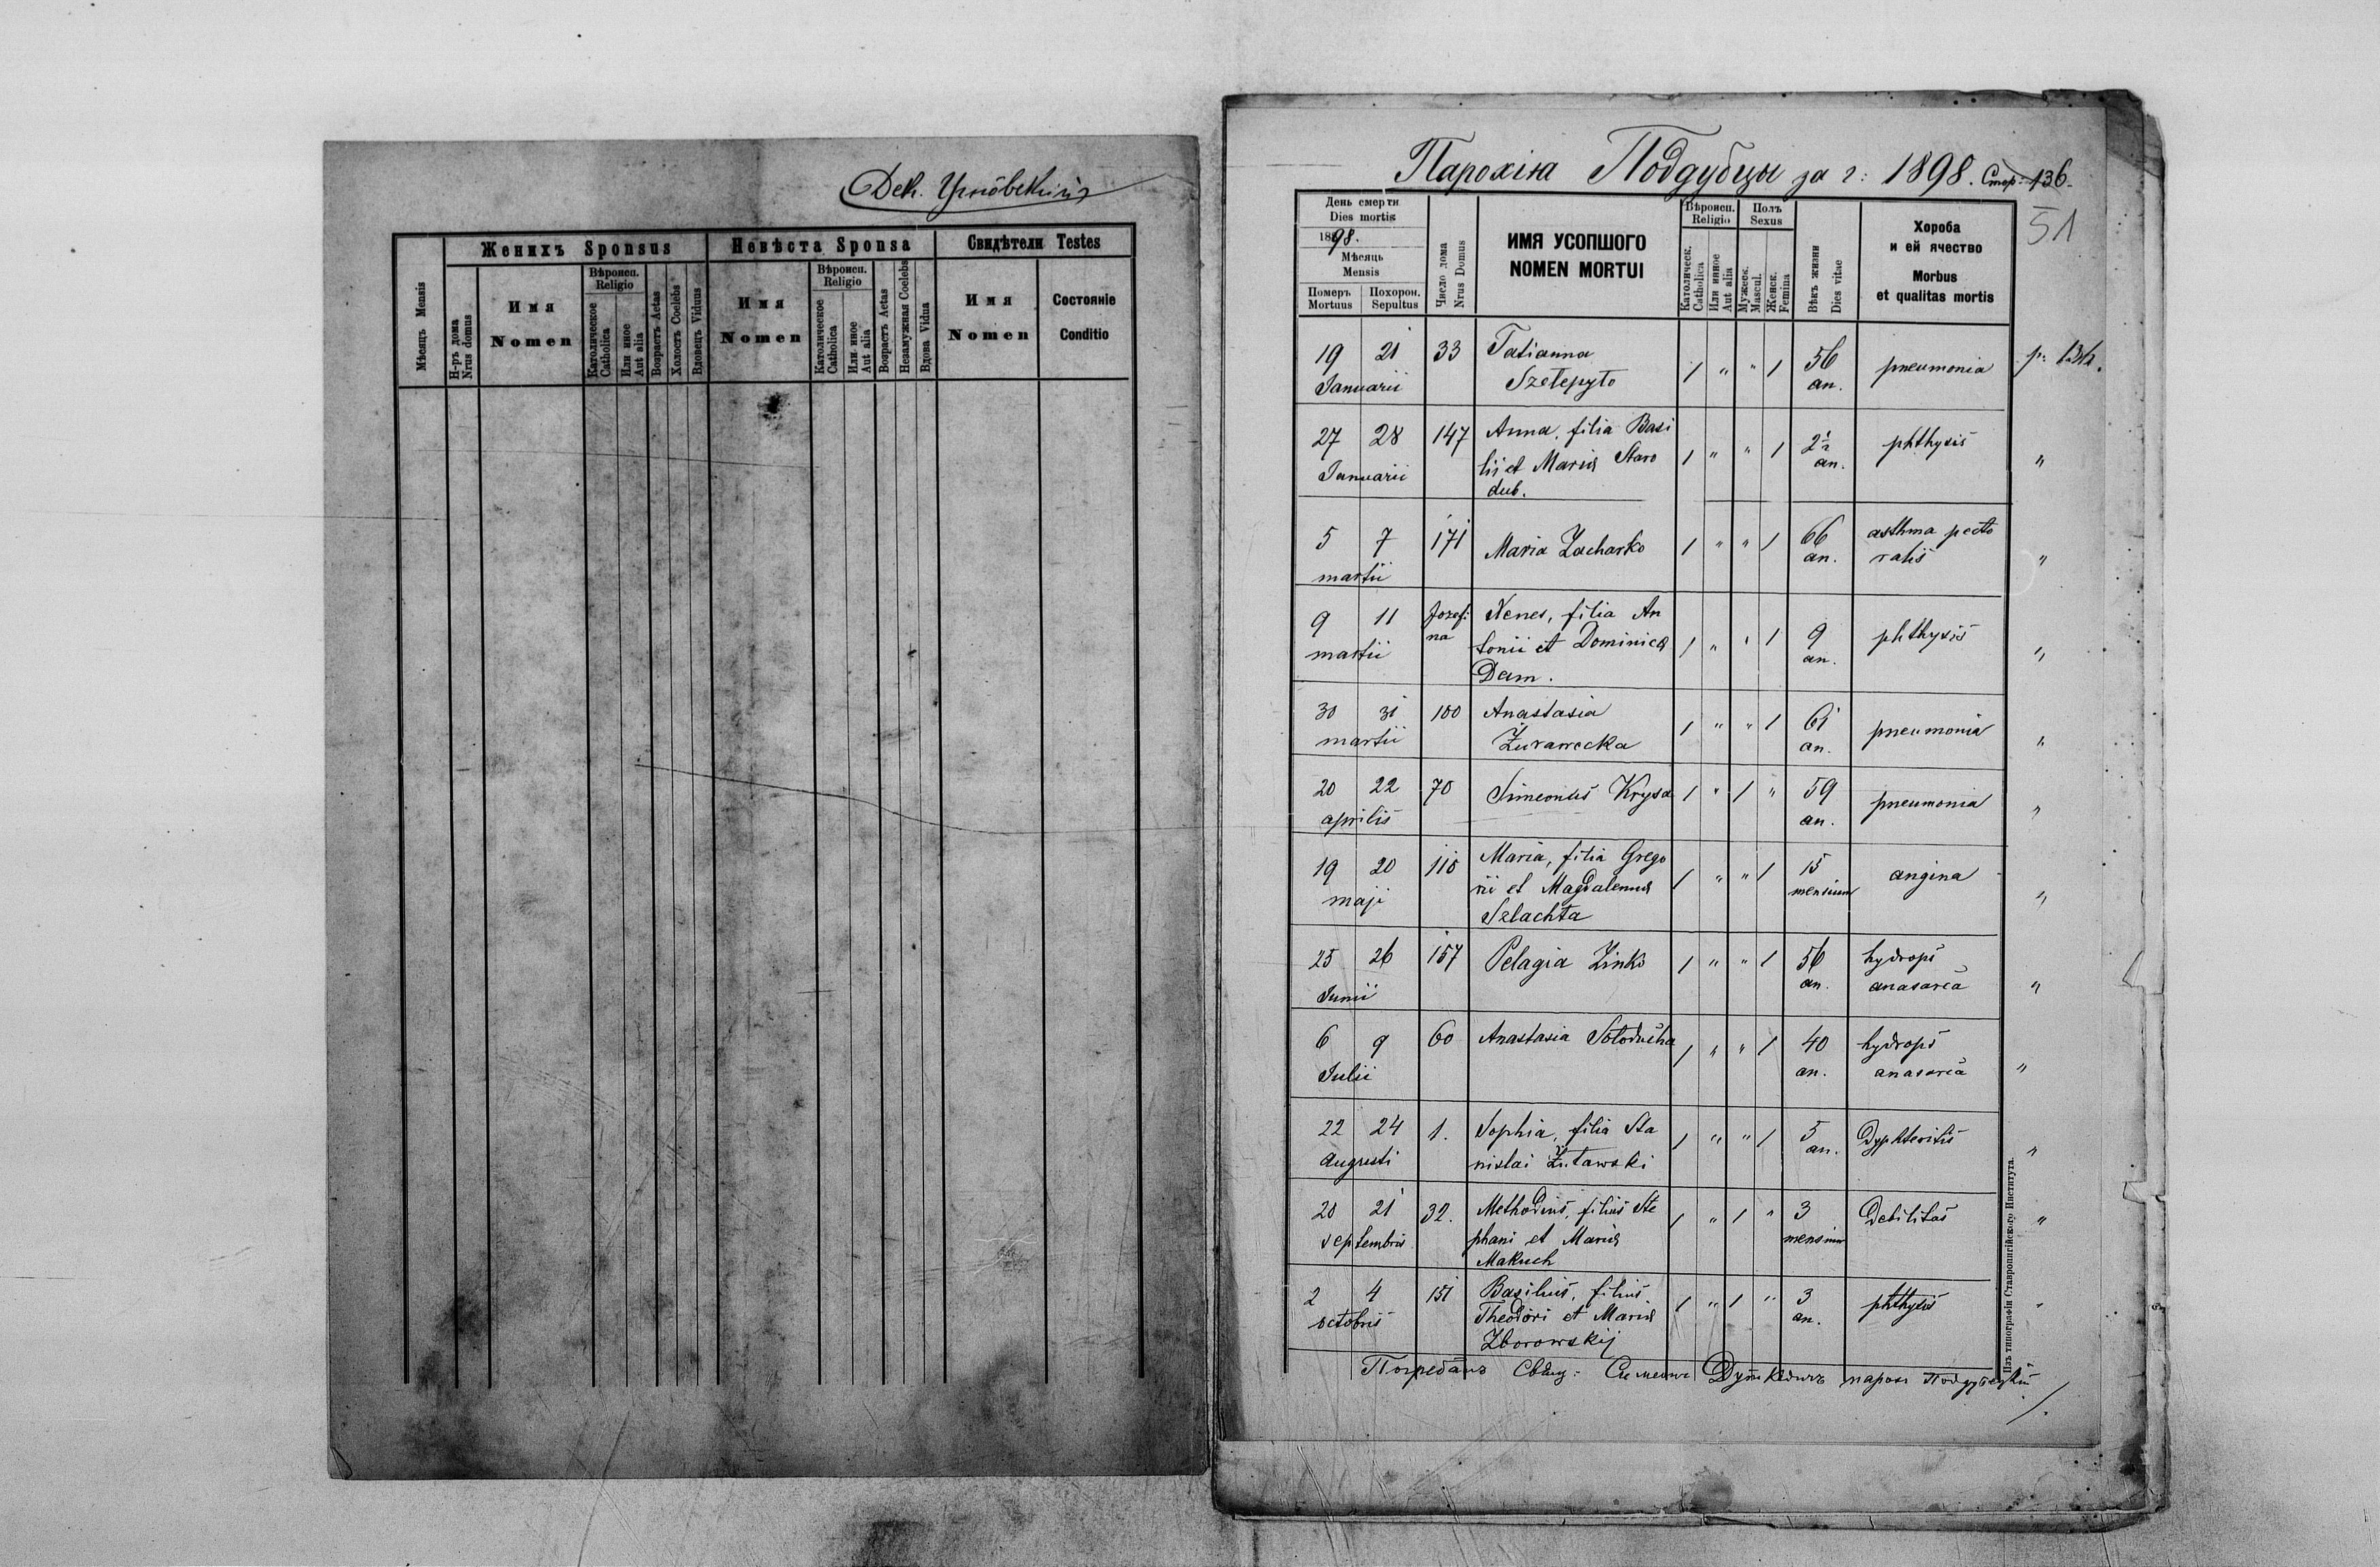 Дек. Угнôвскій
Женихъ Sponsus
Невѣста Sponsa
Свидѣтели Testes
Мѣсяць Mensis
Н-ръ дома
Nrus domus
Имя
Nomen
Вѣроисп.
Religio
Католическое
Catholica
Или иное
Aut alia
Возрастъ Aetas
Холостъ Coelebs
Вдовецъ Viduus
Имя
Nomen
Вѣроисп.
Religio
Католическое
Catholica
Или иное
Aut alia
Возрастъ Aetas
Незамужная Coelebs
Вдова Vidua
Имя
Nomen
Состояніе
Conditio
Парохія Поддубцы за г: 1898. Стор: 136.
51
День смерти
Dies mortis
1898.
Мѣсяць
Mensis
Померъ
Mortuus
Похорон.
Sepultus
Число дома
Nrus Domus
ИМЯ УСОПШОГО
NOMEN MORTUI
Вѣроисп.
Religio
Католическ.
Catholica
Или инное
Aut alia
Полъ
Sexus
Мужеск.
Mascul.
Женск.
Femina
Вѣкъ жизни
Dies vitae
Хороба
и ей ячество
Morbus
et qualitas mortis
19 21 33 Tatianna
Januarii Szełepyło 1 " " 1 56 an. pneumonia
27 28 147 Anna, filia Basi
Januarii lii et Mariæ Staro
dub. 1 " " 1 2½ an. phthysis "
5 7 171 Maria Zacharko 1 " " 1 66 an. asthma pecto
martii ralis "
9 11 Jozefi Xenes, filia An
na tonii et Dominicæ 1 " " 1 9 an. phthysis "
martii Dam.
30 31 100 Anastasia
martii Żurawecka 1 " " 1 61 an. pneumonia "
20 22 70 Simeonus Krysa 1 " 1 " 59 an. pneumonia "
aprilis
19 20 110 Maria, filia Grego
maji rii et Magdalennæ 1 " " 1 15 mensium angina "
Szlachta
25 26 157 Pelagia Zinko 1 " " 1 56 an. hydrops
Junii anasarca "
6 9 60 Anastasia Sołoducha 1 " " 1 40 an. hydrops
Julii anasarca "
22 24 1. Sophia, filia Sta
Augusti nislai Żuławski 1 " " 1 5 an. Dyphteritis "
20 21 32. Methodius, filius Ste
septembris phani et Mariæ 1 " 1 " 3 mensium Debilitas "
Makuch
2 4 151 Basilius, filius
octobris Theodori et Mariæ 1 " 1 " 3 an. phthysis "
Zborowskij
Погребалъ Свящ:
парох Поддубецкій
Изъ типографіи Ставропигійского Института.